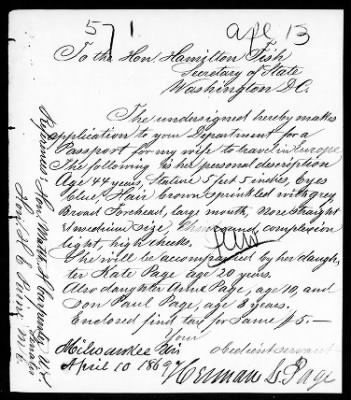 571 Apl 13
To the Hon. Hamilton Fish
Secretary of State
Washington D.C.
The undersigned hereby makes
application to your Department for a
Passport for my wife to travel in Europe
The following is her personal description
Age 44 years, Stature 5 feet 5 inches, Eyes
blue, Hair brown sprinkled with grey
Broad Forehead, large mouth, nose straight
& medium size, Chin round, complexion
light, high cheeks.
She will be accompanied by her daugh-
ter Kate Page age 20 years.
Also daughter Anne Page, age 10, and
son Paul Page, age 8 years.
Enclosed find tax for same $5.—
Your
Milwaukee Wis obedient servant
April 10 1869
Herman L. Page
References Hon. Matt H. Carpenter, U.S.
Senate
Hon. H. E. Paine M.C.